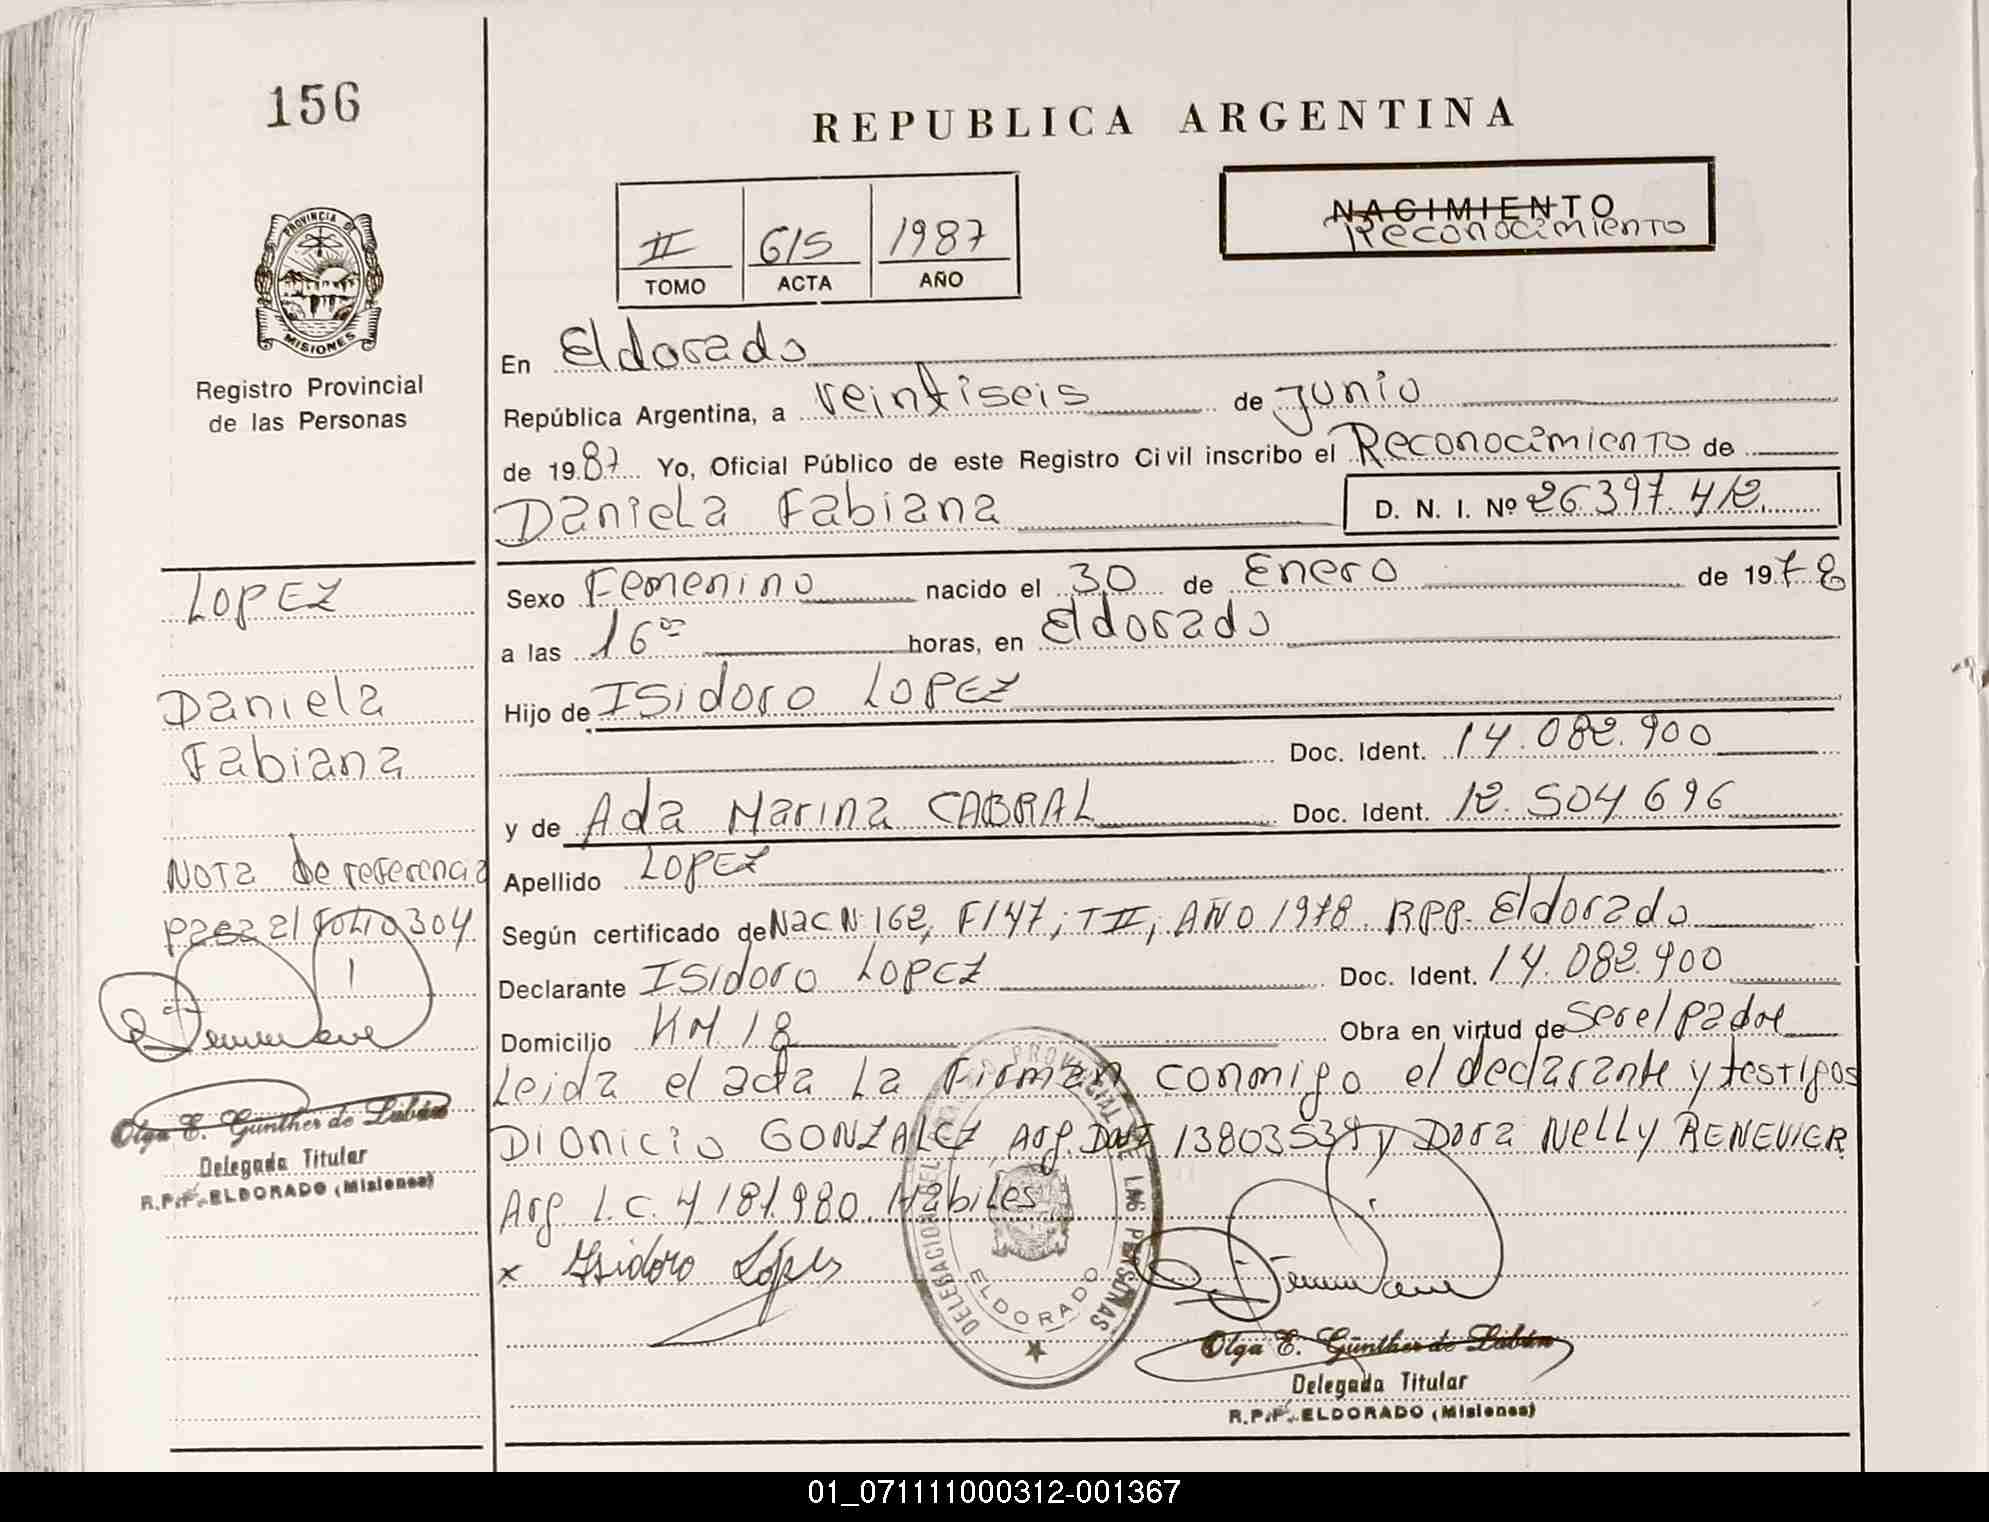 156
REPUBLICA ARGENTINA
II 615 1987
TOMO ACTA AÑO
NACIMIENTO
Reconocimiento
PROVINCIA DE
MISIONES
Registro Provincial
de las Personas
En Eldorado
República Argentina, a veintiseis de junio
de 1987 Yo, Oficial Público de este Registro Civil inscribo el Reconocimiento de
Daniela Fabiana
D. N. I. Nº 26.397.412
LOPEZ
Daniela
Fabiana
Nota de referencia
pasa al folio 304
Olga E. Günther de Labán
Delegada Titular
R.P.P. ELDORADO (Misiones)
Sexo Femenino nacido el 30 de Enero de 1978
a las 16 00 horas, en Eldorado
Hijo de Isidoro LOPEZ
Doc. Ident. 14.082.900
y de Ada Marina CABRAL Doc. Ident. 12.504.696
Apellido LOPEZ
Según certificado de Nac Nº 162, F 147, T II, AÑO 1978. RPP. Eldorado
Declarante Isidoro LOPEZ Doc. Ident. 14.082.900
Domicilio KM 18 Obra en virtud de ser el padre
Leida el acta la Firman conmigo el declarante y testigos
Dionicio GONZALEZ, Arg. 13803539 y Dora Nelly RENEVIER
Arg L.C. 4181.980 Habiles
x Isidoro López
DELEGACION DEL PROVINCIAL DE LAS PERSONAS
ELDORADO
Olga E. Günther de Labán
Delegada Titular
R.P.P. ELDORADO (Misiones)
01_071111000312-001367